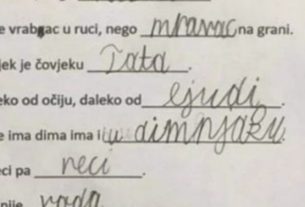 e vrabac u ruci, nego mravac na grani.
jek je čovjeku Tata.
eko od očiju, daleko od ejudi.
e ima dima ima i u dimnjaku.
eci pa neci.
nije voda